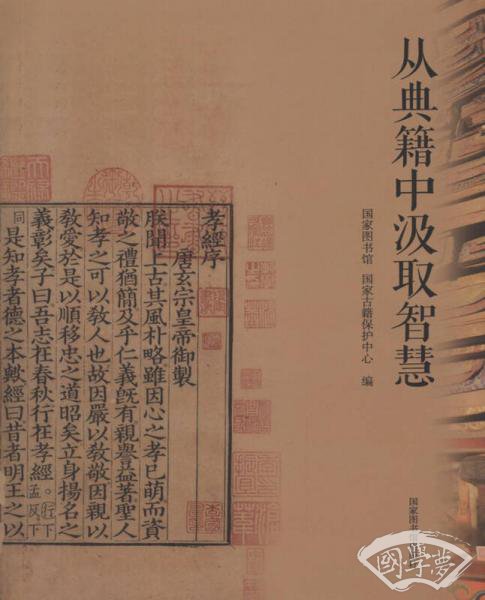 从典籍中汲取智慧
国家图书馆 国家古籍保护中心 编
孝經序
唐玄宗皇帝御製
朕聞上古其風朴略雖因心之孝已萌而資
敬之禮猶簡及乎仁義旣有親譽益著聖人
知孝之可以敎人也故因嚴以敎敬因親以
敎愛於是以順移忠之道昭矣立身揚名之
義彰矣子曰吾志在春秋行在孝經。行下孟反下
同是知孝者德之本歟經曰昔者明王之以
國家图书馆
國學夢